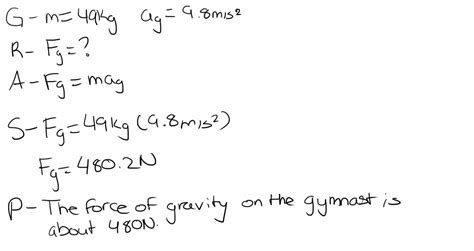 G - m = 49kg ag = 9.8m/s²
R - Fg = ?
A - Fg = mag
S - Fg = 49kg (9.8m/s²)
Fg = 480.2N
P - The force of gravity on the gymnast is
about 480N.